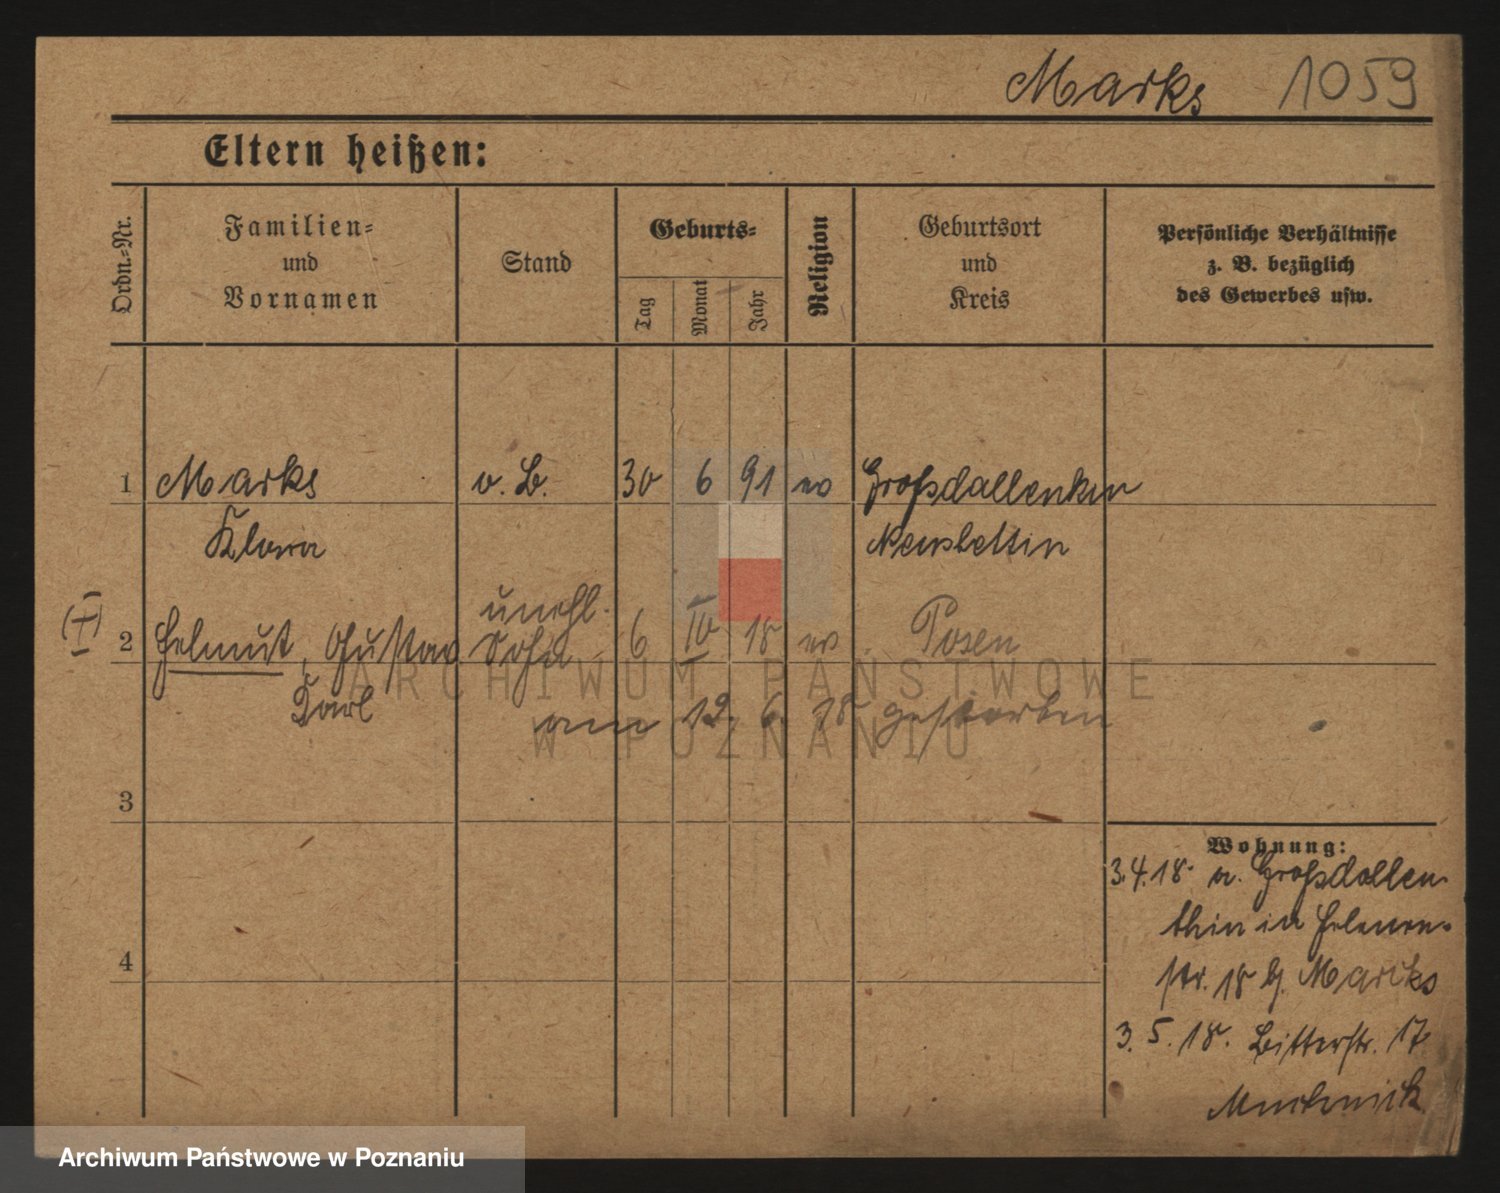 Marks 1059
Eltern heißen:
Ordn.-Nr.
Familien-
und
Vornamen
Stand
Geburts-
Tag
Monat
Jahr
Religion
Geburtsort
und
Kreis
Persönliche Verhältnisse
z. B. bezüglich
des Gewerbes usw.
1 Marks o. B. 30 6 91 ev Großdallenkin
Klara Neustettin
unehl.
2 Helmut, Gustav Sohn 6 IV 18 ev Posen
Karl am 12. 6. 18 gestorben
3
4
Wohnung:
3.4.18 a. Großdallen-
thin in Helenen-
str. 18 b. Marks
3. 5. 18. Bitterstr. 17
ARCHIWUM PAŃSTWOWE
W POZNANIU
Archiwum Państwowe w Poznaniu